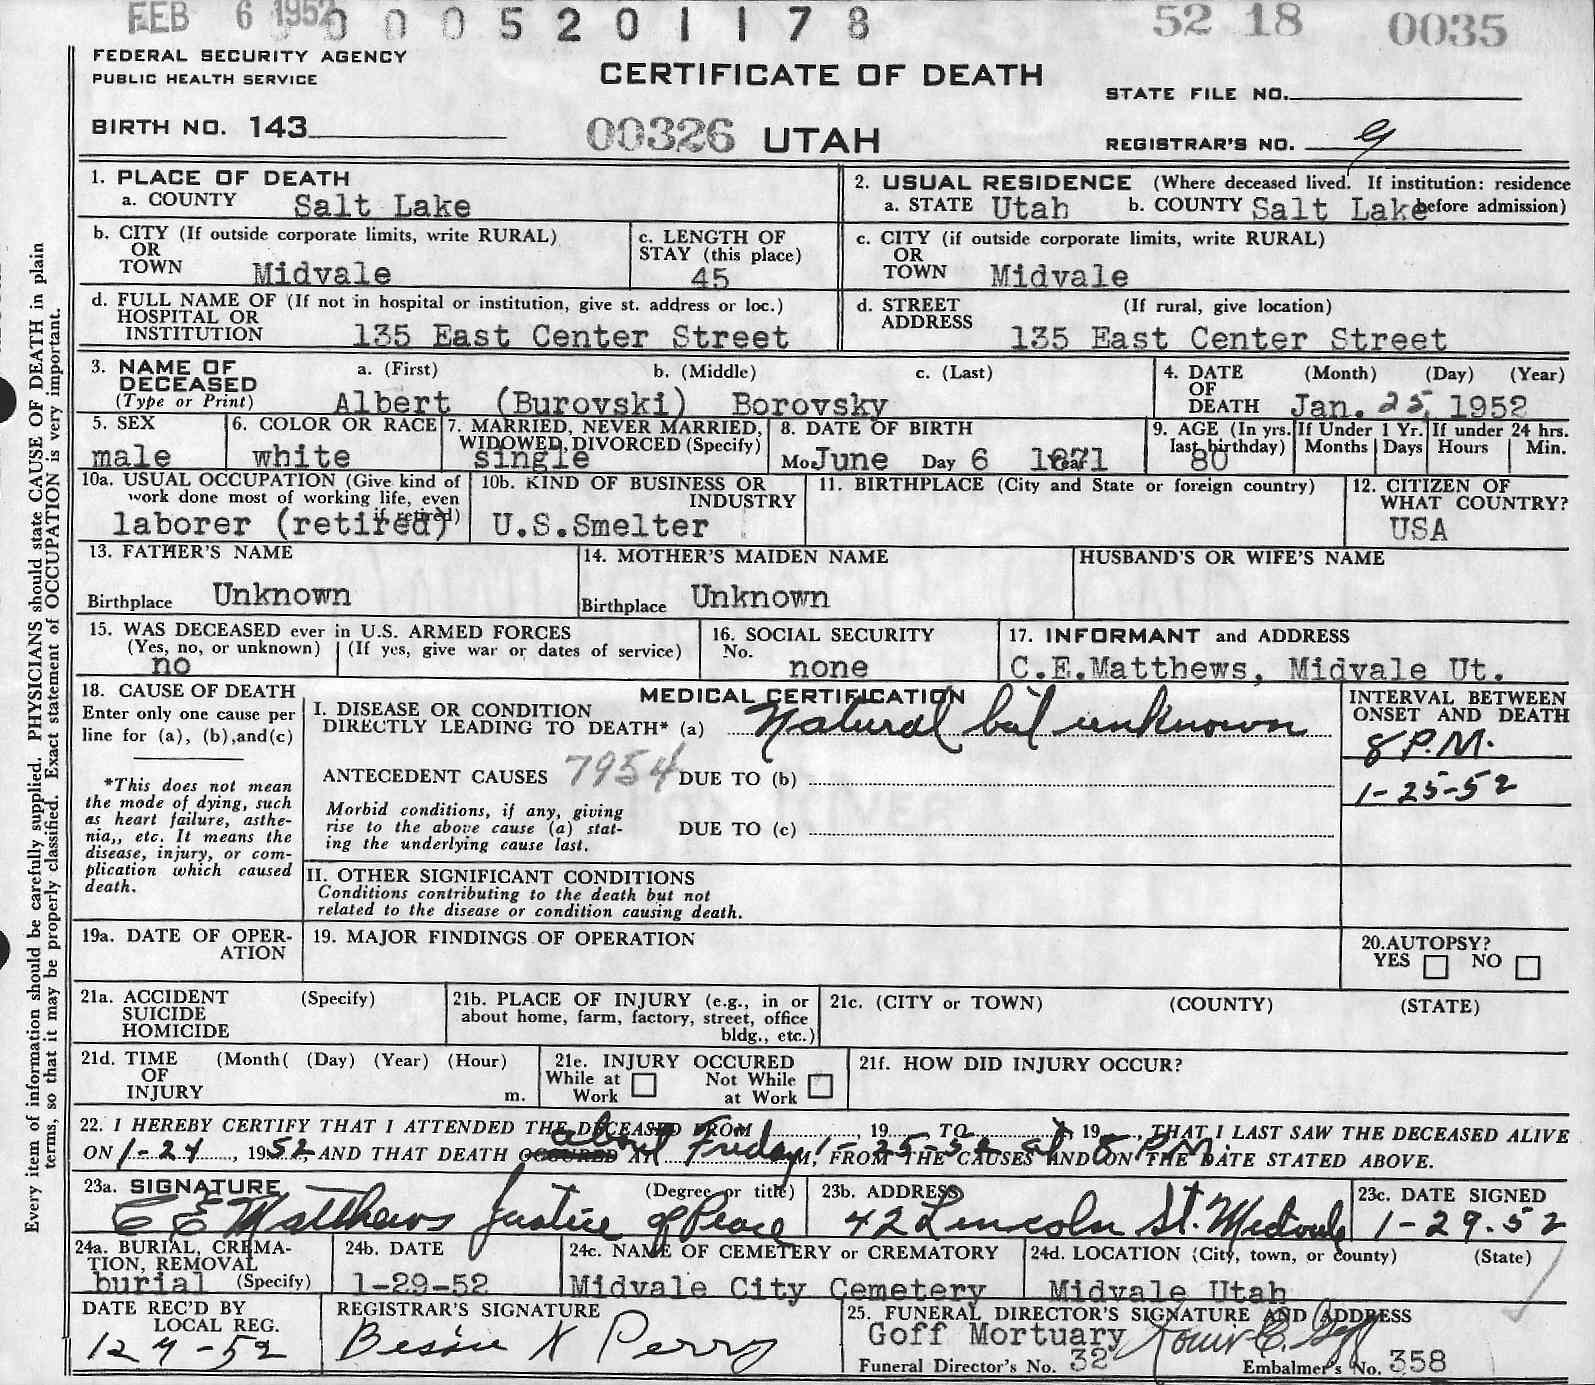 FEB 6 1952 0 0 0 5 2 0 1 1 7 8 52 18 0035
FEDERAL SECURITY AGENCY
PUBLIC HEALTH SERVICE
CERTIFICATE OF DEATH
STATE FILE NO.
BIRTH NO. 143
00326 UTAH
REGISTRAR'S NO. 9
1. PLACE OF DEATH
a. COUNTY Salt Lake
2. USUAL RESIDENCE (Where deceased lived. If institution: residence
a. STATE Utah b. COUNTY Salt Lake before admission)
b. CITY (If outside corporate limits, write RURAL)
OR
TOWN Midvale
c. LENGTH OF
STAY (this place)
45
c. CITY (if outside corporate limits, write RURAL)
OR
TOWN Midvale
d. FULL NAME OF (If not in hospital or institution, give st. address or loc.)
HOSPITAL OR
INSTITUTION 135 East Center Street
d. STREET (If rural, give location)
ADDRESS 135 East Center Street
3. NAME OF a. (First) b. (Middle) c. (Last)
DECEASED
(Type or Print) Albert (Burovski) Borovsky
4. DATE (Month) (Day) (Year)
OF
DEATH Jan. 25, 1952
5. SEX
male
6. COLOR OR RACE
white
7. MARRIED, NEVER MARRIED,
WIDOWED, DIVORCED (Specify)
single
8. DATE OF BIRTH
Mo June Day 6 Year 1871
9. AGE (In yrs.
last birthday)
80
If Under 1 Yr.
Months Days
If under 24 hrs.
Hours Min.
10a. USUAL OCCUPATION (Give kind of
work done most of working life, even
if retired)
laborer (retired)
10b. KIND OF BUSINESS OR
INDUSTRY
U.S.Smelter
11. BIRTHPLACE (City and State or foreign country)
12. CITIZEN OF
WHAT COUNTRY?
USA
13. FATHER'S NAME
Birthplace Unknown
14. MOTHER'S MAIDEN NAME
Birthplace Unknown
HUSBAND'S OR WIFE'S NAME
15. WAS DECEASED ever in U.S. ARMED FORCES
(Yes, no, or unknown) (If yes, give war or dates of service)
no
16. SOCIAL SECURITY
No.
none
17. INFORMANT and ADDRESS
C.E.Matthews, Midvale Ut.
18. CAUSE OF DEATH
Enter only one cause per
line for (a), (b),and(c)
*This does not mean
the mode of dying, such
as heart failure, asthe-
nia,, etc. It means the
disease, injury, or com-
plication which caused
death.
MEDICAL CERTIFICATION
I. DISEASE OR CONDITION
DIRECTLY LEADING TO DEATH* (a) Natural but unknown
ANTECEDENT CAUSES 7954 DUE TO (b)
Morbid conditions, if any, giving
rise to the above cause (a) stat-
ing the underlying cause last.
DUE TO (c)
INTERVAL BETWEEN
ONSET AND DEATH
8 P.M.
1-25-52
II. OTHER SIGNIFICANT CONDITIONS
Conditions contributing to the death but not
related to the disease or condition causing death.
19a. DATE OF OPER-
ATION
19. MAJOR FINDINGS OF OPERATION
20.AUTOPSY?
YES NO
21a. ACCIDENT (Specify)
SUICIDE
HOMICIDE
21b. PLACE OF INJURY (e.g., in or
about home, farm, factory, street, office
bldg., etc.)
21c. (CITY or TOWN) (COUNTY) (STATE)
21d. TIME (Month( (Day) (Year) (Hour)
OF
INJURY m.
21e. INJURY OCCURED
While at Work
Not While at Work
21f. HOW DID INJURY OCCUR?
22. I HEREBY CERTIFY THAT I ATTENDED THE DECEASED FROM , 19 TO , 19 , THAT I LAST SAW THE DECEASED ALIVE
ON 1-24, 1952, AND THAT DEATH OCCURED AT about Friday 1-25-52 at 8 P.M. M, FROM THE CAUSES AND ON THE DATE STATED ABOVE.
23a. SIGNATURE (Degree or title)
C E Matthews Justice of Peace
23b. ADDRESS
42 Lincoln St. Midvale
23c. DATE SIGNED
1-29-52
24a. BURIAL, CREMA-
TION, REMOVAL
burial (Specify)
24b. DATE
1-29-52
24c. NAME OF CEMETERY or CREMATORY
Midvale City Cemetery
24d. LOCATION (City, town, or county) (State)
Midvale Utah
DATE REC'D BY
LOCAL REG.
REGISTRAR'S SIGNATURE
Perry
25. FUNERAL DIRECTOR'S SIGNATURE AND ADDRESS
Goff Mortuary
Funeral Director's No. 32
Embalmer's No. 358
Every item of information should be carefully supplied. PHYSICIANS should state CAUSE OF DEATH in plain
terms, so that it may be properly classified. Exact statement of OCCUPATION is very important.